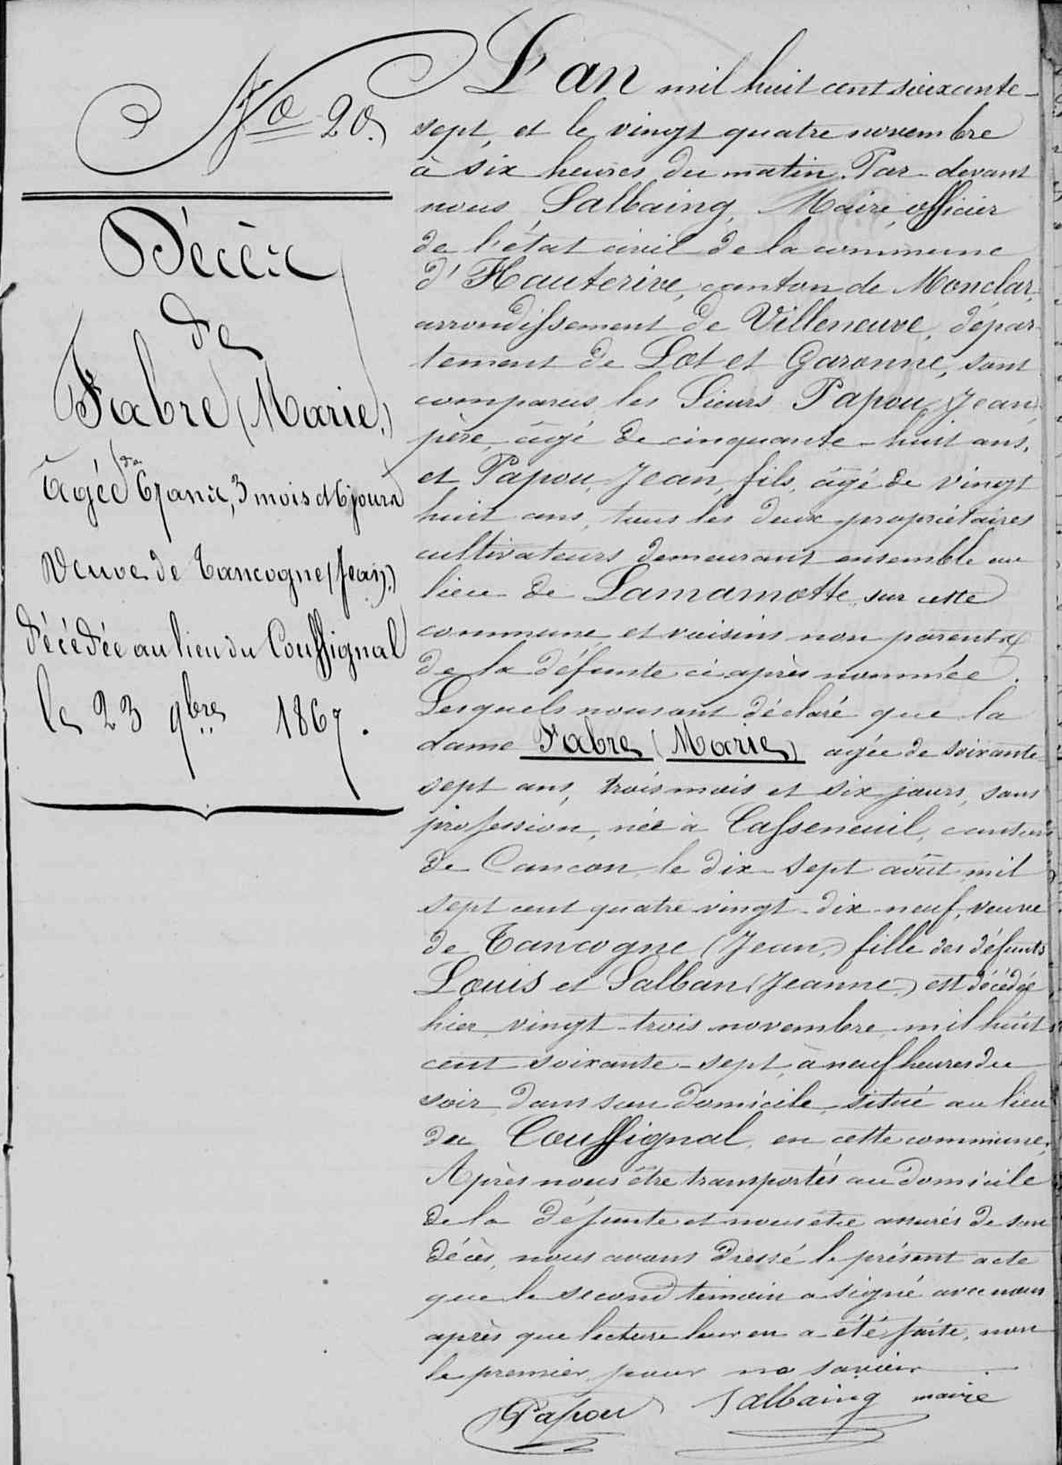 No 20.
Décès
de
Fabre (Marie,)
âgée de 67 ans, 3 mois et 6 jours
veuve de Tancogne (Jean,)
décédée au lieu du Couffignal
le 23 9bre 1867.
L'an mil huit cent soixante-
sept, et le vingt quatre novembre
à six heures du matin. Par-devant
nous Salbaing, Maire, officier
de l'état civil de la commune
d'Hauterive, canton de Monclar,
arrondissement de Villeneuve, dépar-
tement de Lot et Garonne, sont
comparus les Sieurs Papou, Jean,
père, âgé de cinquante-huit ans,
et Papou, Jean, fils, âgé de vingt
huit ans, tous les deux propriétaires
cultivateurs demeurant ensemble au
lieu de Lamamotte sur cette
commune et voisins non parents
de la défunte ci après nommée.
Lesquels nous ont déclaré que la
dame Fabre (Marie) agée de soixante
sept ans, trois mois et six jours, sans
profession, née à Casseneuil, canton
de Cancon, le dix-sept août mil
sept cent quatre vingt-dix-neuf, veuve
de Tancogne (Jean,) fille des défunts
Louis et Salban (Jeanne,) est décédée
hier, vingt-trois novembre mil huit
cent soixante-sept, à neuf heures du
soir dans son domicile situé au lieu
du Couffignal, en cette commune.
Après nous être transportés au domicile
de la défunte et nous être assurés de son
décès, nous avons dressé le présent acte
que le second témoin a signé avec nous
après que lecture leur en a été faite, non
le premier pour ne savoir
Papou Salbaing maire